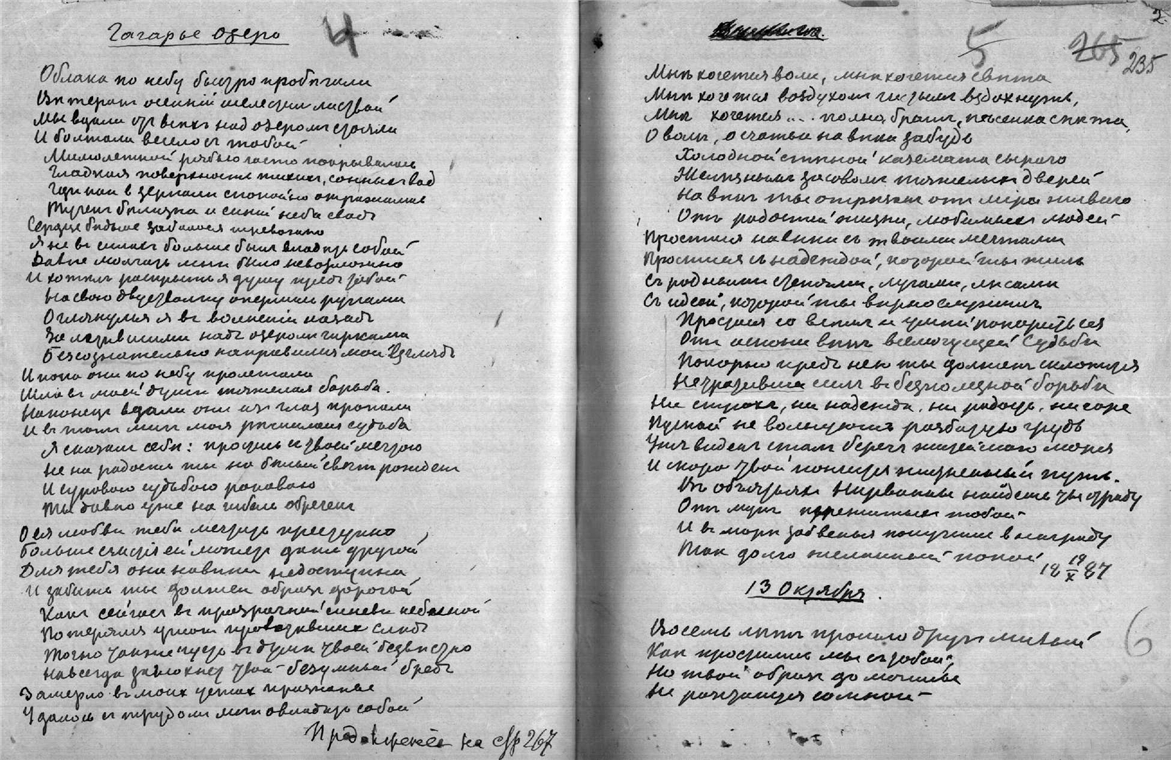 Гагарье озеро
4
Облака по небу быстро пробѣгали
Вѣтерокъ осенній шелестил листвой
Мы вдали отъ всѣхъ над озером стояли
И болтали весело с тобой
Мимолетной рябью часто покрывалась
Гладкая поверхность тихих, сонных вод
Гдѣ как в зеркалѣ спокойно отражались
Тучек бѣлизна и синій неба свод
Сердце бѣдное забилося тревожно
Я не в силах больше был владѣть собой
Далѣе молчать мнѣ было невозможно
И хотѣл раскрыть я душу пред тобой
На свою двустволку опершись руками
Оглянулся я в волненіи назад
За ходившими над озером
Безсознательно направился мой взгляд
И пока они по небу пролетали
Шла в моей душѣ тяжелая борьба.
Наконец вдали они из глаз пропали
И в тот миг моя рѣшилася судьба
Я сказал себѣ: простись с своей мечтою
Не на радость ты на бѣлый свѣт рожден
И суровою судьбою роковою
Ты давно уже на гибель обречен
О ея любви тебѣ мечтать преступно
Больше счастья ей может дать другой
Для тебя она навѣки недоступна
И забыть ты должен образ дорогой
Как сейчас в прозрачной синевѣ небесной
Потерялся уток слѣд
Точно так же пусть в душѣ твоей безвѣстно
Навсегда твой безумный бред
Замерло в моих устах признанье
Удалось с трудом мнѣ овладѣть собой
Продолжение на стр 267
2
5
265 235
Мнѣ хочется воли, мнѣ хочется свѣта
Мнѣ хочется воздухом чистым вздохнуть,
Мнѣ хочется... полно, брат, пѣсенка спѣта,
О волѣ, о счастьи навѣки забудь
Холодной стѣной каземата сырого
Желѣзным засовом тяжелых дверей
Навѣк ты отрѣзан от міра живого
От радостей жизни, любимых людей
Простися навѣки съ твоими мечтами
Простися съ надеждой, которой ты жил
Съ родными степями, лугами, лѣсами
Съ идеей, которой ты вѣрно служил
Простися со всѣм и умѣй покориться
веленью всемогущей судьбы
Покорно пред нею ты должен склониться
Неравенство сил в безполезной борьбѣ
Ни страха, ни надежда, ни радость, ни горе
Пускай не волнуют разбитую грудь
Уж виден стал берег житейского моря
И скоро твой кончится жизненный путь.
В объятьях Нирваны найдешь ты отраду
От мук пережитых тобой
И в морѣ забвенья получишь в награду
Так долго желанный покой
18 19/X 87
13 Октября.
6
Восемь лѣт прошло друг милый
Как простились мы с тобой
Но твой образ до могилы
Не разстанется со мной